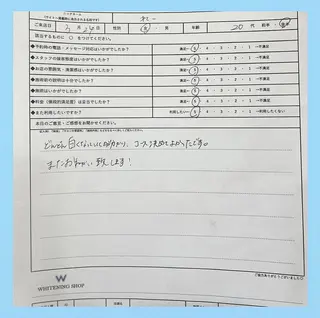 ご来店日 月 日 性別 年齢 20代
該当するものに〇をつけてください。
◆予約時の電話・メッセージ対応はいかがでしたか? 満足← 5 ・ 4 ・ 3 ・ 2 ・ 1 →不満足
◆スタッフの接客態度はいかがでしたか? 満足← 5 ・ 4 ・ 3 ・ 2 ・ 1 →不満足
◆お店の雰囲気・清潔感はいかがでしたか? 満足← 5 ・ 4 ・ 3 ・ 2 ・ 1 →不満足
◆施術前の説明は十分でしたか? 満足← 5 ・ 4 ・ 3 ・ 2 ・ 1 →不満足
◆施術はいかがでしたか? 満足← 5 ・ 4 ・ 3 ・ 2 ・ 1 →不満足
◆料金(価格的満足度)は妥当でしたか? 満足← 5 ・ 4 ・ 3 ・ 2 ・ 1 →不満足
◆また利用したいですか? 利用したい← 5 ・ 4 ・ 3 ・ 2 ・ 1 →利用したくない
本日のご意見・ご感想をお聞かせください。
どんどん白くなっていくのが分かり、コース決めてよかったです。
またおねがい致します!
ご協力ありがとうございました
W
WHITENING SHOP